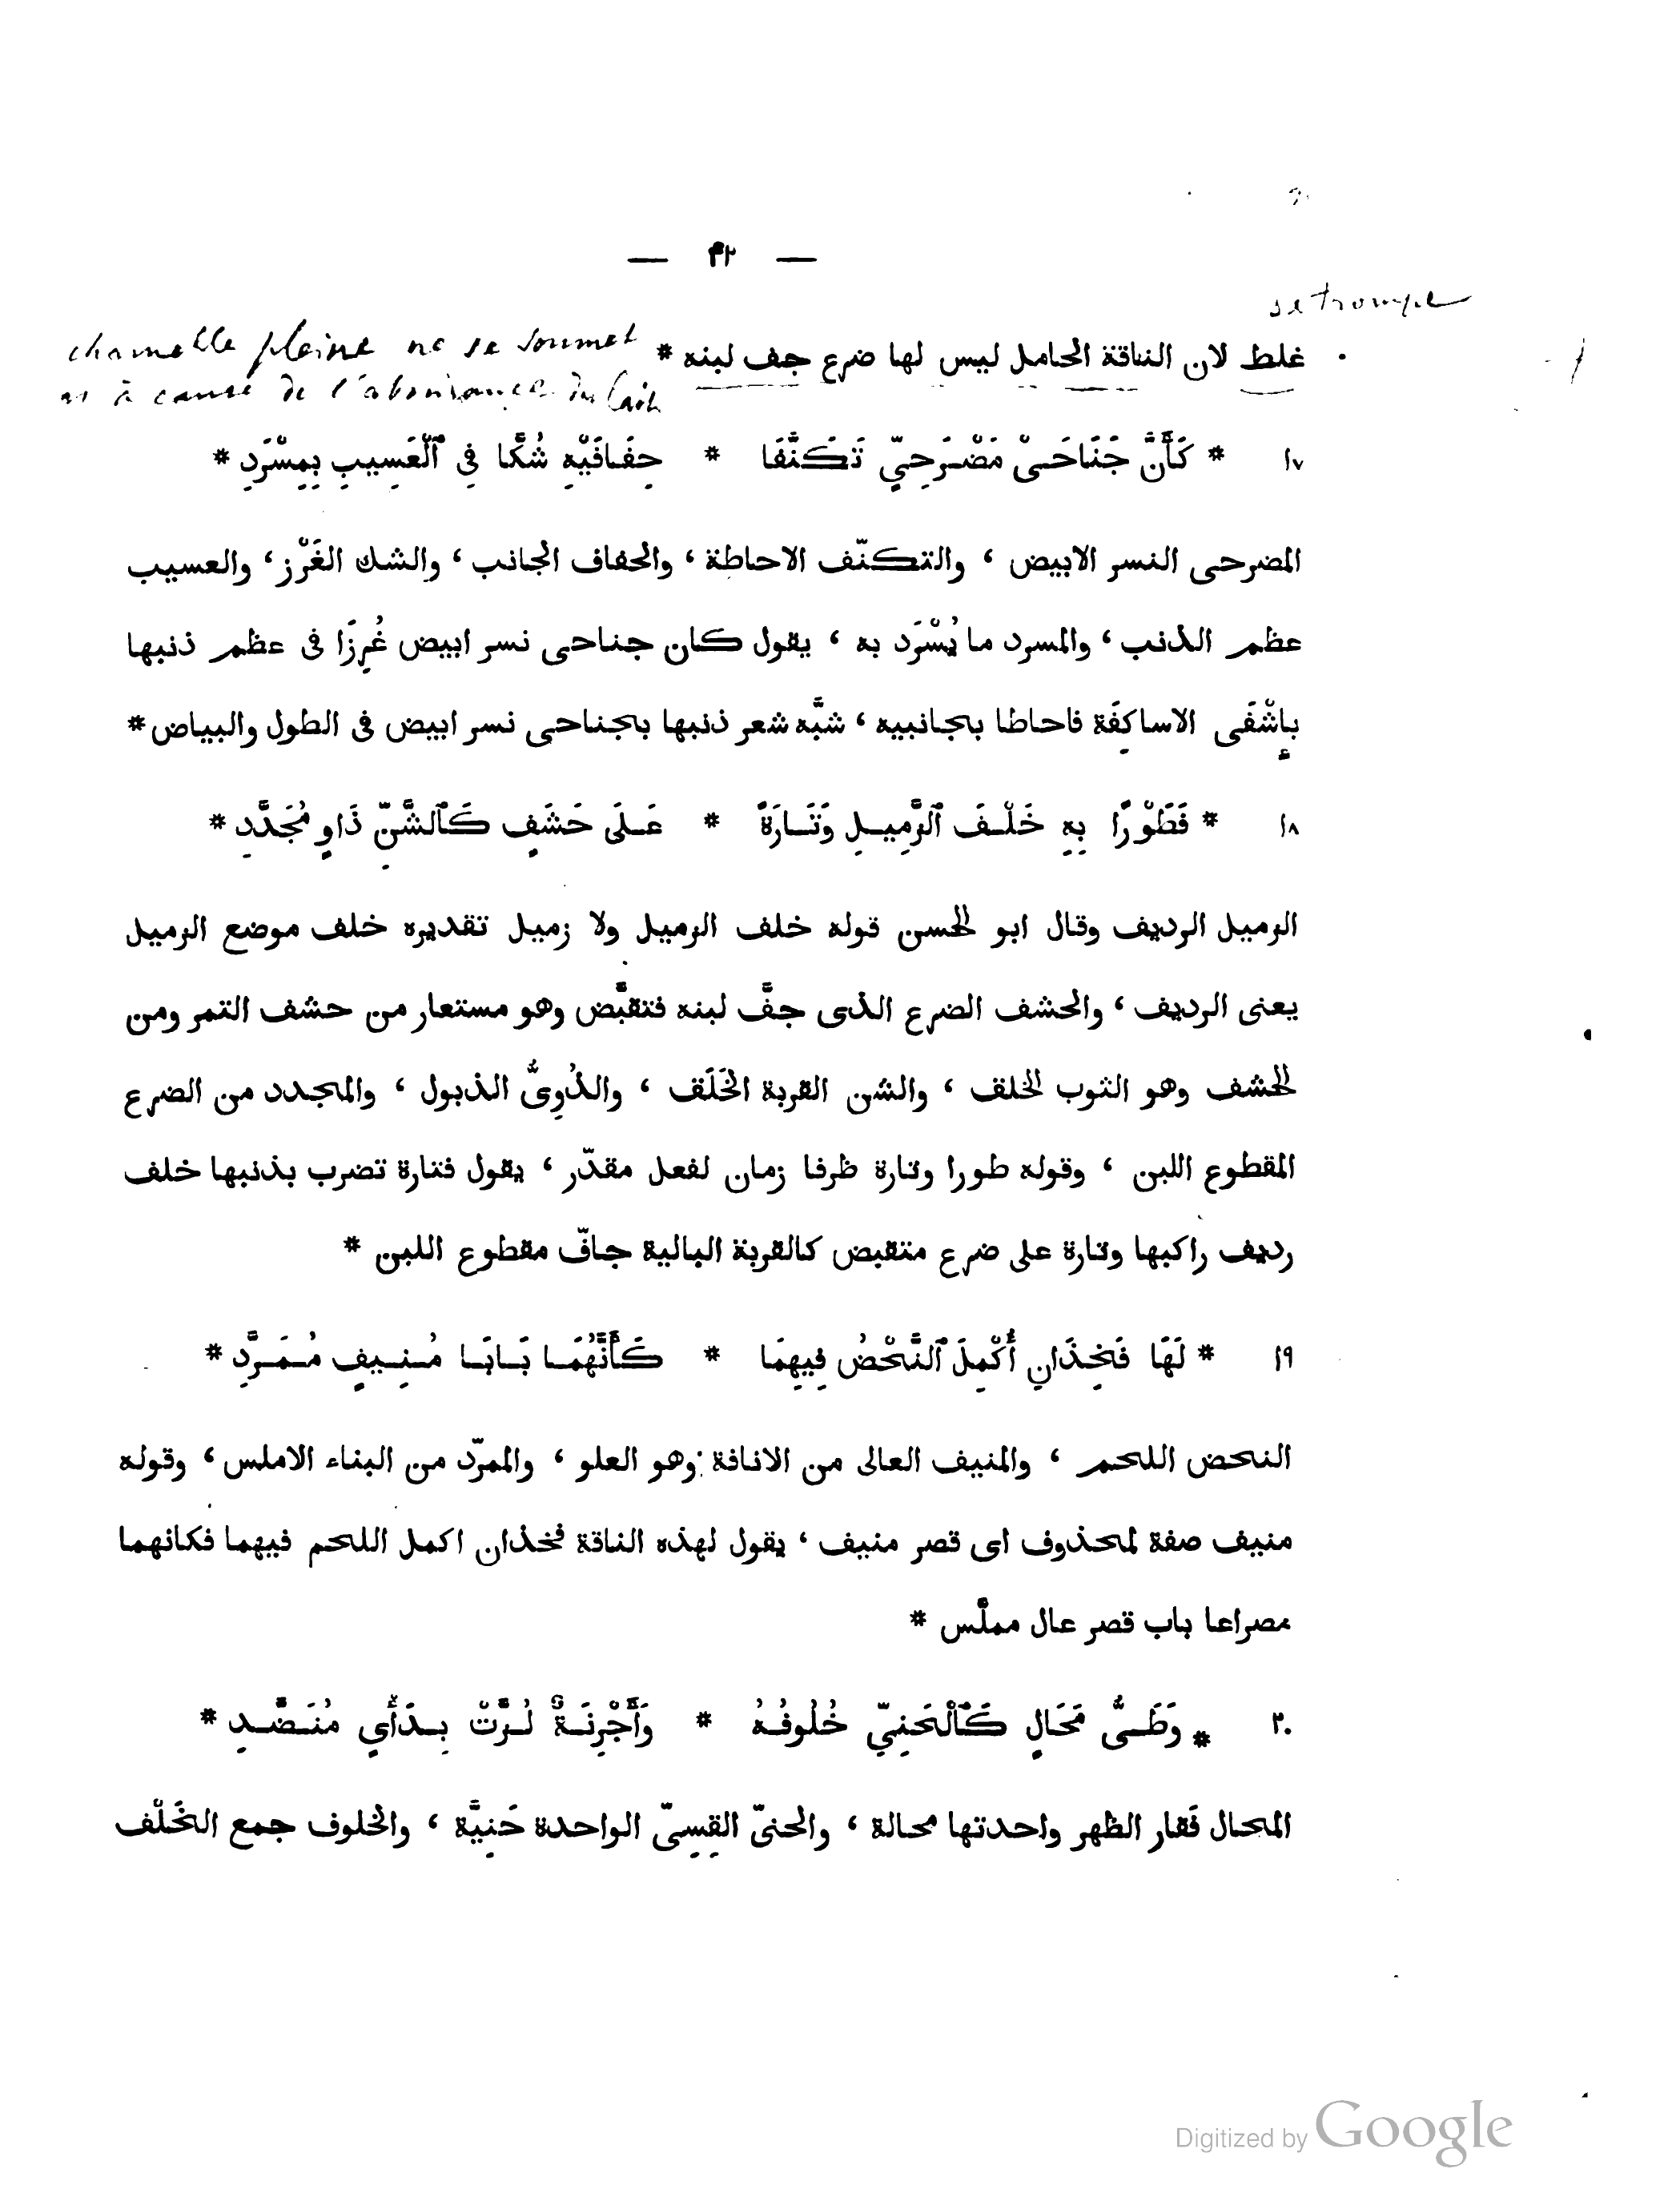 — ٣٢ —
se trompe
غلط لان الناقة الحامل ليس لها ضرع جف لبنه *
chamelle pleine ne se soumet
à cause de l'abondance du lait
١٧ * كَأَنَّ جَنَاحَىْ مَضْرَحِيٍّ تَكَنَّفَا * حِفَافَيْهِ شُكَّا فِي ٱلْعَسِيبِ بِمِسْرَدِ *
المضرحى النسر الابيض ، والتكنّف الاحاطة ، والحفاف الجانب ، والشك الغَرْز ، والعسيب
عظم الذنب ، والمسرد ما يُسْرَد به ، يقول كان جناحى نسر ابيض غُرِزَا فى عظم ذنبها
بإشْفَى الاساكِفَة فاحاطا بجانبيه ، شبَّه شعر ذنبها بجناحى نسر ابيض فى الطول والبياض *
١٨ * فَطَوْرًا بِهِ خَلْفَ ٱلزَّمِيلِ وَتَارَةً * عَلَى حَشَفٍ كَٱلشَّنِّ ذَاوٍ مُجَدَّدِ *
الزميل الرديف وقال ابو الحسن قوله خلف الزميل ولا زميل تقديره خلف موضع الزميل
يعنى الرديف ، والحشف الضرع الذى جفَّ لبنه فتقبَّض وهو مستعار من حشف التمر ومن
الحشف وهو الثوب الخلق ، والشن القربة الخَلَق ، والذُوِىُّ الذبول ، والمجدد من الضرع
المقطوع اللبن ، وقوله طورا وتارة ظرفا زمان لفعل مقدّر ، يقول فتارة تضرب بذنبها خلف
رديف راكبها وتارة على ضرع متقبض كالقربة البالية جافّ مقطوع اللبن *
١٩ * لَهَا فَخِذَانِ أُكْمِلَ ٱلنَّحْضُ فِيهِمَا * كَأَنَّهُمَا بَابَا مُنِيفٍ مُمَرَّدِ *
النحض اللحم ، والمنيف العالى من الانافة وهو العلو ، والممرّد من البناء الاملس ، وقوله
منيف صفة لمحذوف اى قصر منيف ، يقول لهذه الناقة فخذان اكمل اللحم فيهما فكانهما
مصراعا باب قصر عال مملَّس *
٢٠ * وَطَىُّ مَحَالٍ كَٱلْحَنِيِّ خُلُوفُهُ * وَأَجْرِنَةٌ لُزَّتْ بِدَأْيٍ مُنَضَّدِ *
المحال فَقار الظهر واحدتها محالة ، والحنىّ القِسِىّ الواحدة حَنِيَّة ، والخلوف جمع الخَلْف
Digitized by Google